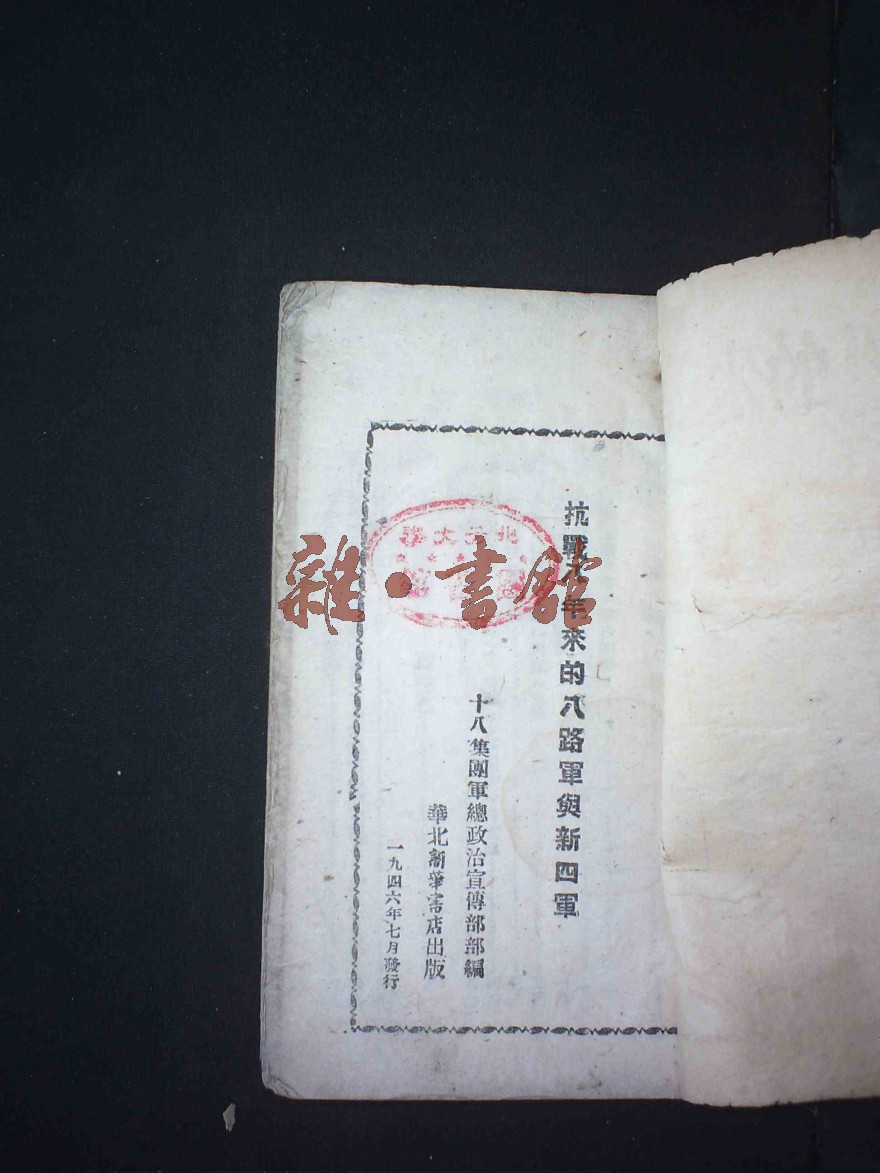 抗戰八年來的八路軍與新四軍
十八集團軍總政治宣傳部部編
華北新華書店出版
一九四六年七月發行
北方大學
雜·書館